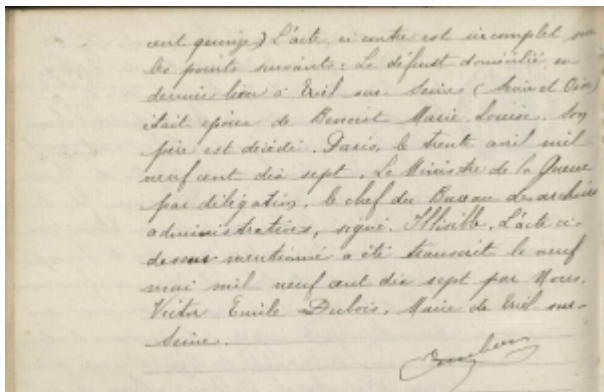 cent quinze) L'acte ci contre est incomplet sur
les points suivants : Le défunt domicilié en
dernier lieu à Triel-sur-Seine (Seine et Oise)
était époux de Benoist Marie Louise. Son
père est décédé. Paris, le trente avril mil
neuf cent dix sept. Le Ministre de la Guerre
par délégation, le chef du Bureau des archives
administratives, signé : Illisible. L'acte ci-
dessus mentionné a été transcrit le neuf
mai mil neuf cent dix sept par Nous,
Victor Emile Dubois, Maire de Triel-sur-
Seine.